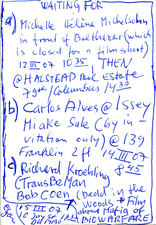 WAITING FOR
a) Michelle Hélène Michelsohn
in front of Balthazar (which
is closed for a film shoot)
12 III 07 10 35 | THEN
@ HALSTEAD Real Estate
7 9nd/Columbus 14 30
b) Carlos Alves @ Issey
Miyake Sale (by in-
vitation only) @ 139
Franklin 2 fl 14 III 07
8 45
c) Richard Kroehling
TransBeMan
Bob COEN (dead in the
woods Film
about Mafia of
BIOWARFARE)